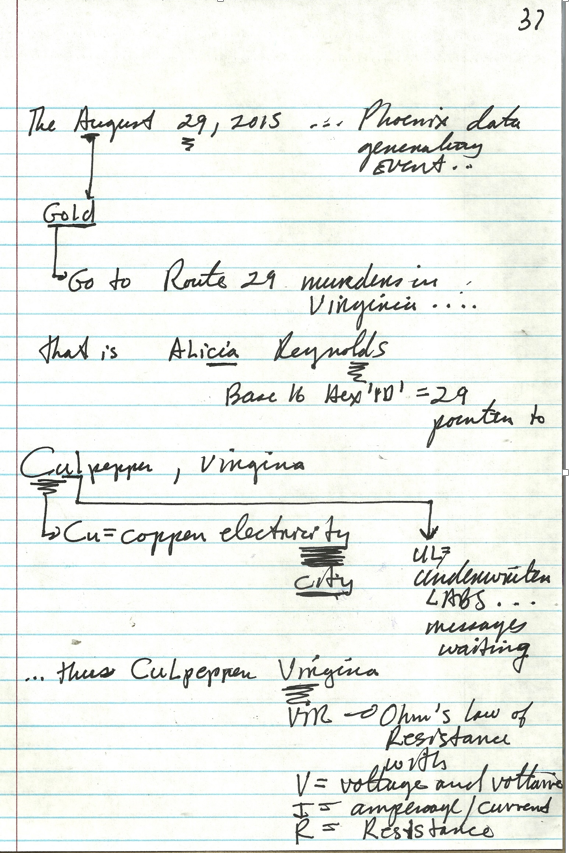 37
The August 29, 2015 ... Phoenix data
generating
EVENT...
Gold
Go to Route 29 murders in
Virginia ....
that is ALicia Reynolds
Base 16 Hex '1D' = 29
pointer to
Culpepper, Virgina
Cu = copper electricity
city
UL =
Underwriter
LABS ...
messages
waiting
... thus CuLpepper Virgina
ViR → Ohm's law of
Resistance
with
V = voltage and
I = amperage/current
R = Resistance